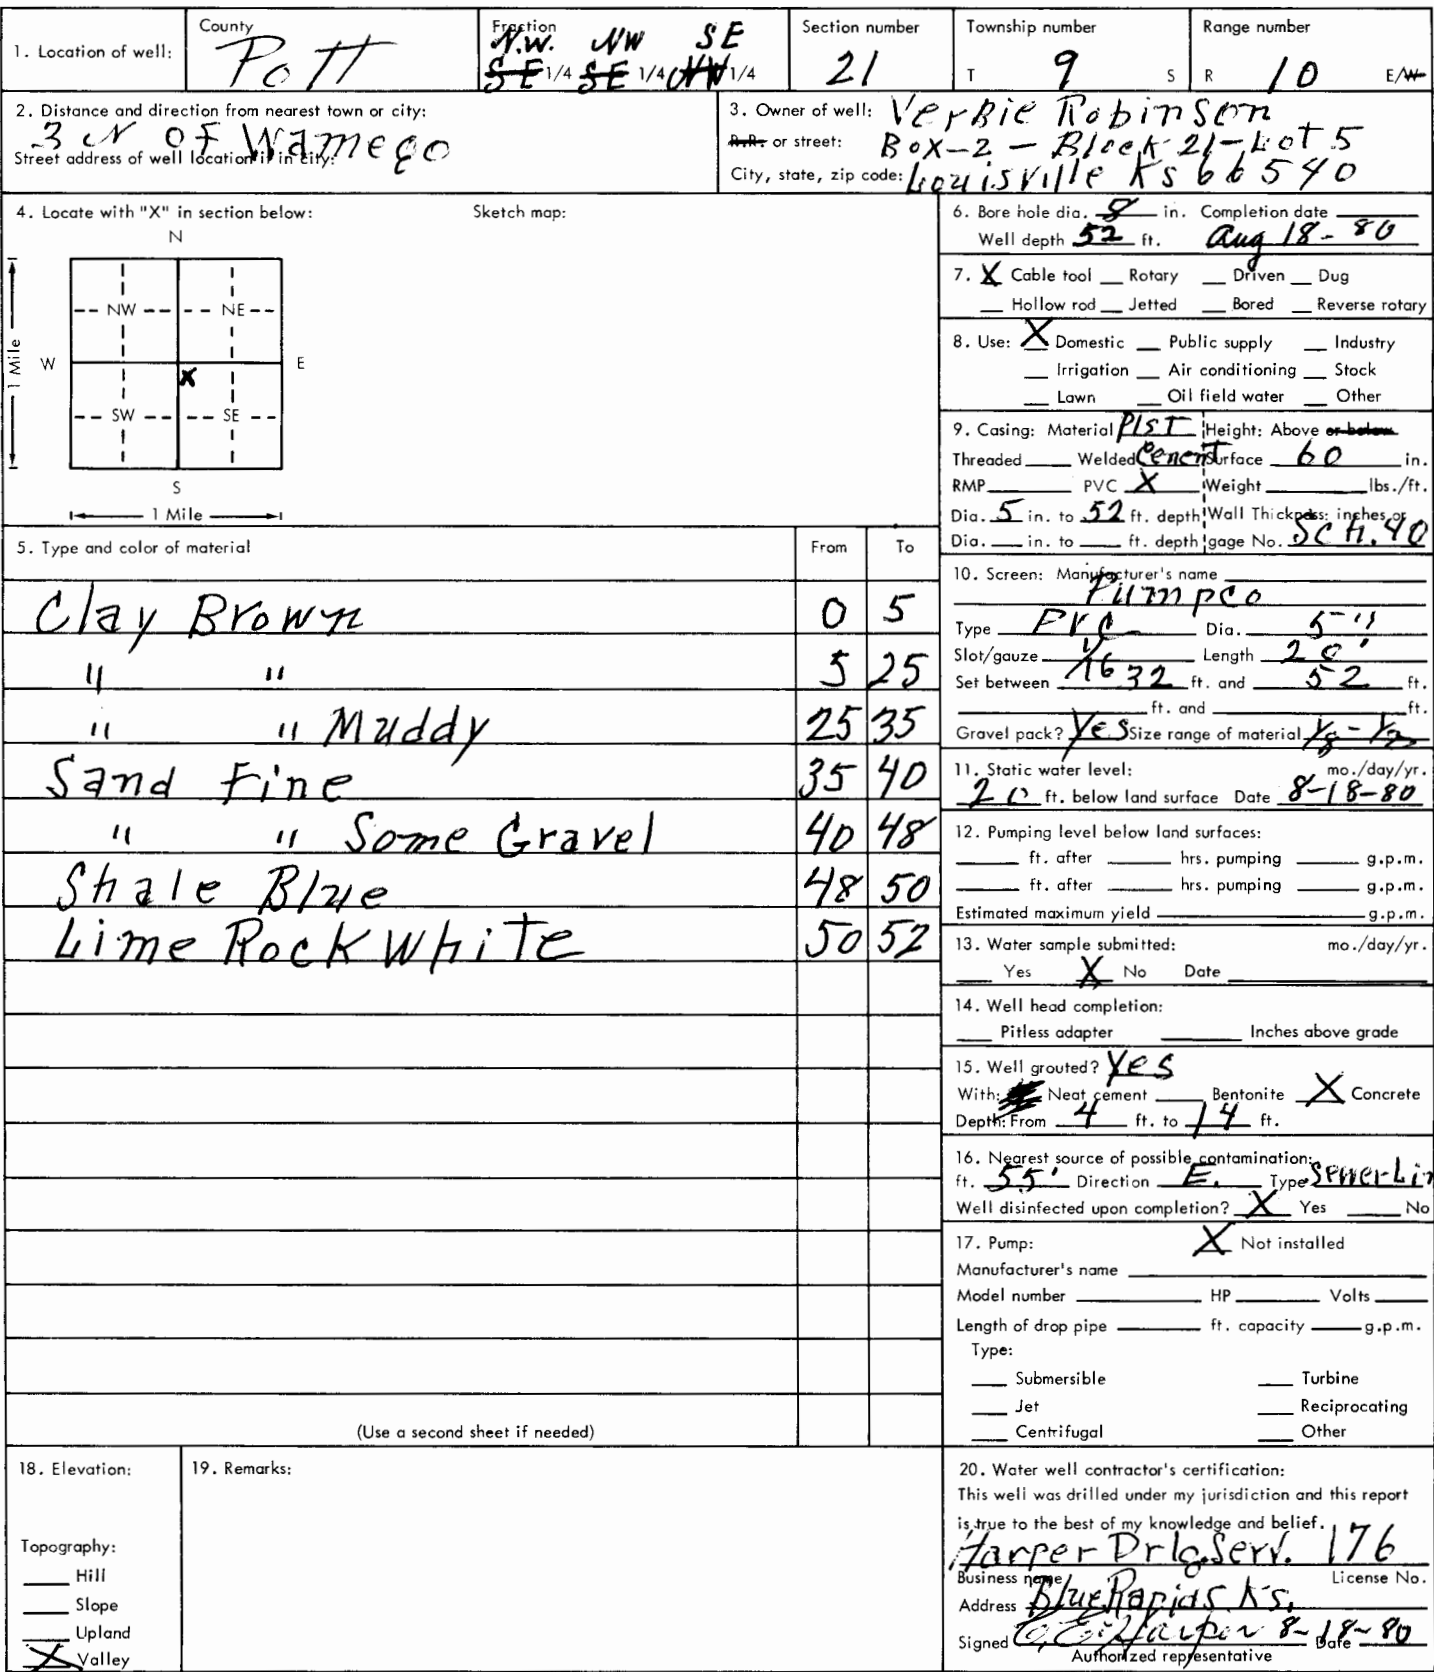 1. Location of well:
County
Pott
Fraction
N.W. NW SE
SE 1/4 SE 1/4 NW 1/4
Section number
21
Township number
T 9 S
Range number
R 10 E/W
2. Distance and direction from nearest town or city:
3 N of Wamego
Street address of well location if in city:
3. Owner of well: Verbie Robinson
R.R. or street: Box-2 - Block 21-Lot 5
City, state, zip code: Louisville Ks 66540
4. Locate with "X" in section below:
Sketch map:
N
NW NE
W E
X
SW SE
S
1 Mile
1 Mile
5. Type and color of material From To
Clay Brown 0 5
" " 5 25
" " Muddy 25 35
Sand Fine 35 40
" " Some Gravel 40 48
Shale Blue 48 50
Lime Rock White 50 52
(Use a second sheet if needed)
6. Bore hole dia. 8 in. Completion date
Well depth 52 ft. Aug 18-80
7. X Cable tool Rotary Driven Dug
Hollow rod Jetted Bored Reverse rotary
8. Use: X Domestic Public supply Industry
Irrigation Air conditioning Stock
Lawn Oil field water Other
9. Casing: Material Plst Height: Above or below
Threaded Welded Cement Surface 60 in.
RMP PVC X Weight lbs./ft.
Dia. 5 in. to 52 ft. depth Wall Thickness: inches or
Dia. in. to ft. depth gage No. Sch. 40
10. Screen: Manufacturer's name
Pumpco
Type PVC Dia. 5"
Slot/gauze 1/16 Length 20'
Set between 32 ft. and 52 ft.
ft. and ft.
Gravel pack? Yes Size range of material 1/8 - 1/2
11. Static water level: mo./day/yr.
20 ft. below land surface Date 8-18-80
12. Pumping level below land surfaces:
ft. after hrs. pumping g.p.m.
ft. after hrs. pumping g.p.m.
Estimated maximum yield g.p.m.
13. Water sample submitted: mo./day/yr.
Yes X No Date
14. Well head completion:
Pitless adapter Inches above grade
15. Well grouted? Yes
With: Neat cement Bentonite X Concrete
Depth: From 4 ft. to 14 ft.
16. Nearest source of possible contamination:
ft. 55' Direction E. Type Sewer Lin
Well disinfected upon completion? X Yes No
17. Pump: X Not installed
Manufacturer's name
Model number HP Volts
Length of drop pipe ft. capacity g.p.m.
Type:
Submersible Turbine
Jet Reciprocating
Centrifugal Other
18. Elevation:
Topography:
Hill
Slope
Upland
X Valley
19. Remarks:
20. Water well contractor's certification:
This well was drilled under my jurisdiction and this report
is true to the best of my knowledge and belief.
Harper Drlg. Serv. 176
Business name License No.
Address Blue Rapids Ks.
Signed Harper 8-18-80 Date
Authorized representative